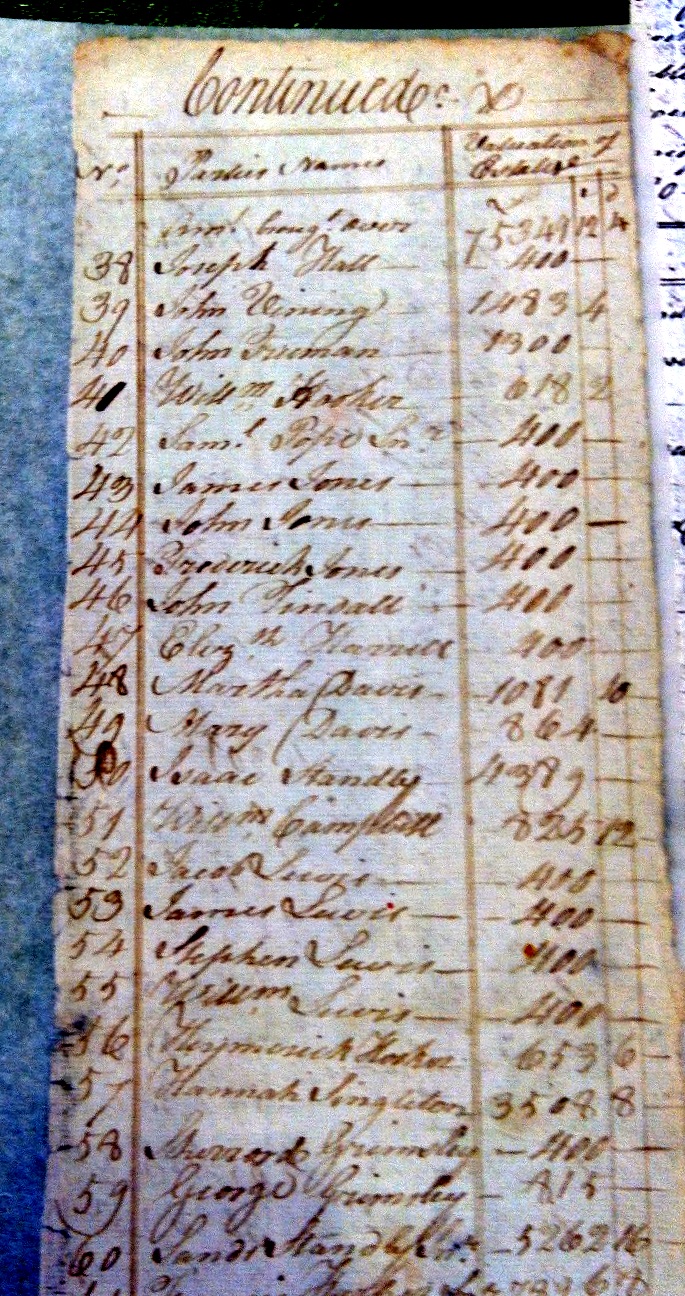 Continued
No. Parties Names Valuation of Estates
s d
Amt. broug.t over 75341 12 4
38 Joseph Hall — 400 —
39 John Vining — 1483 4
40 John Truman — 1300 —
41 Will.m Hooker — 618 2
42 Sam.l Pope Sn.r — 400 —
43 James Jones — 400 —
44 John Jones — 400 —
45 Frederick Jones — 400 —
46 John Tindall — 400 —
47 Eliz.th 400 —
48 Martha Davis — 1081 10 —
49 Mary Davis — 864 —
50 Isaac Standley 4389 —
51 Will.m Campbell 825 12 —
52 Jacob Lewis — 400 —
53 James Lewis — 400 —
54 Stephen Lewis — 400 —
55 Will.m Lewis — 400 —
56 Hymerick Hooker 653 6 —
57 Hannah Singleton 3508 8 —
58 Grimsley — 400 —
59 George Grimsley — 815 —
60 Sands Standley Sr. — 5262 16 —